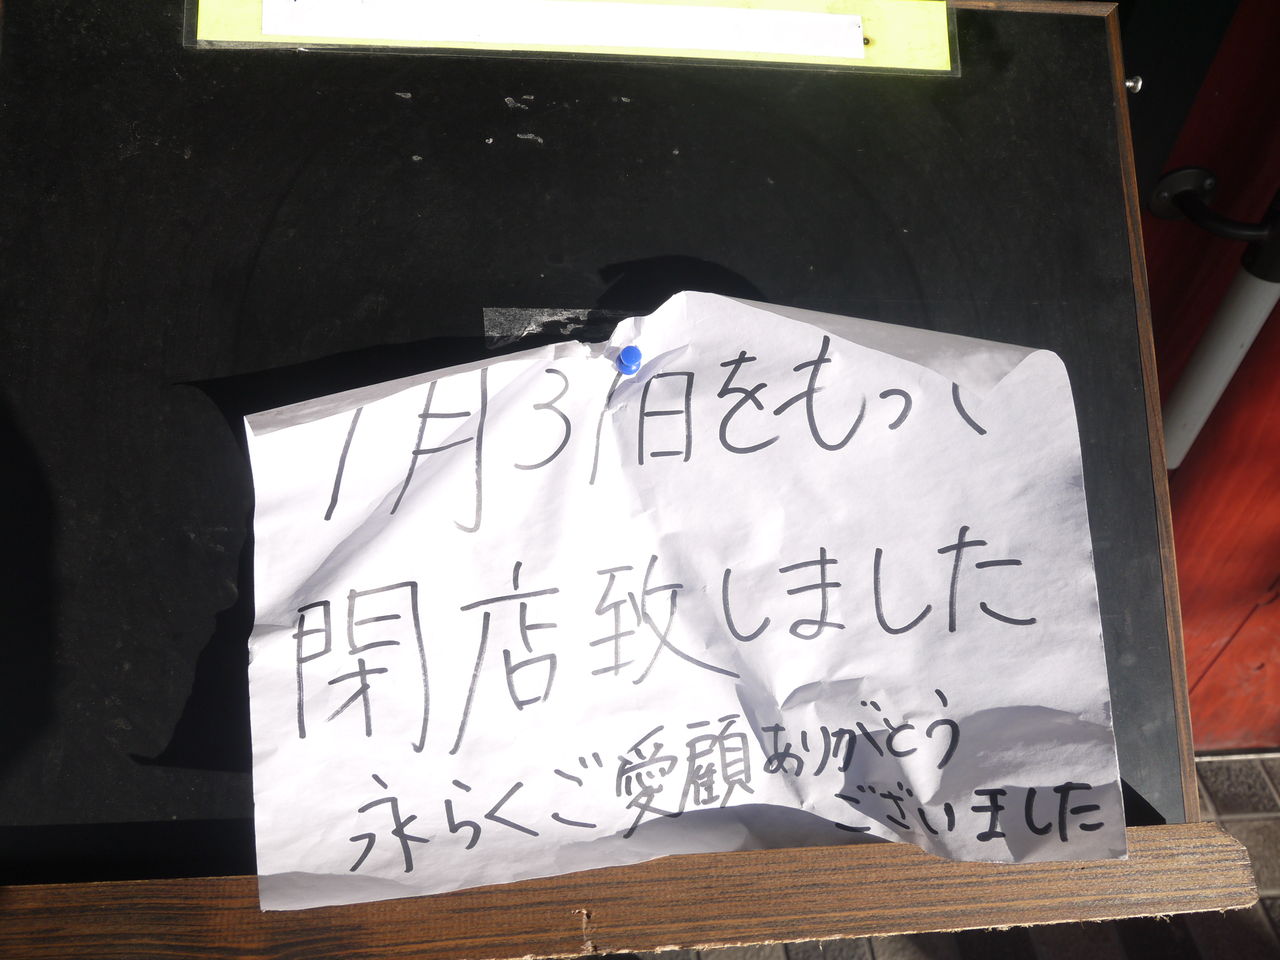 1月31日をもって
閉店致しました
永らくご愛顧ありがとう
ございました